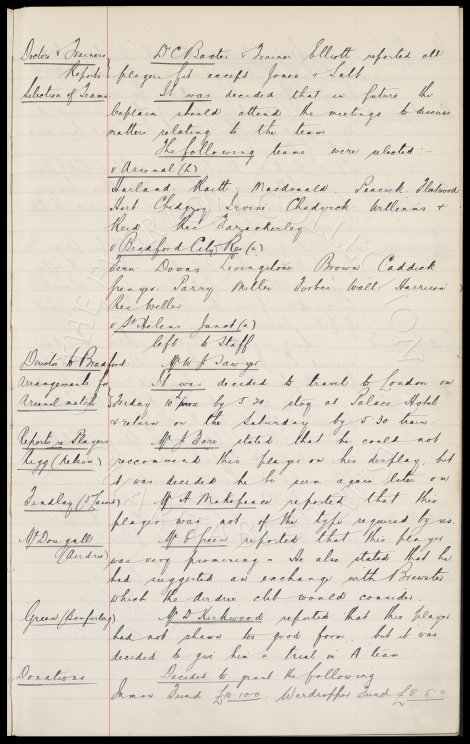 Doctors & Trainers Dr C Baxter & Trainer Elliott reported all
Reports players fit except Jones & Salt
Selection of Teams It was decided that in future the
Captain should attend the meetings to discuss
matters relating to the team
The following teams were selected:-
v Arsenal (L)
Harland Raitt Macdonald Peacock Fleetwood
Hart Chedgzoy Irvine Chadwick Williams &
Reid Res Fazackerley
v Bradford City Res (a)
Fern Downs Livingstone Brown Caddick
Parry Miller Forbes Wall Harrison
Res Weller
v St Helens Junct (a)
left to Staff
Director to Bradford Mr W J Sawyer
Arrangements for It was decided to travel to London on
Arsenal match Friday 10th by 5.20 stay at Palace Hotel
& return on the Saturday by 5.30 train.
Reports re Players Mr J Bare stated that he could not
Kegg (Nelson) reccommend this player on his display, but
it was decided he be seen again later on
Findlay Mr H Makepeace reported that this
player was not of the type required by us
McDougall Mr E Green reported that this player
(Airdrie) was very promising. He also stated that he
had suggested an exchange with Brewster
which the Airdrie club would consider
Green Mr D Kirkwood reported that this player
had not shewn too good form, but it was
decided to give him a trial in A team
Donations Decided to grant the following
Inman Fund £10.10.0. Wardropper Fund £5.5.0
THE EVERTON COLLECTION